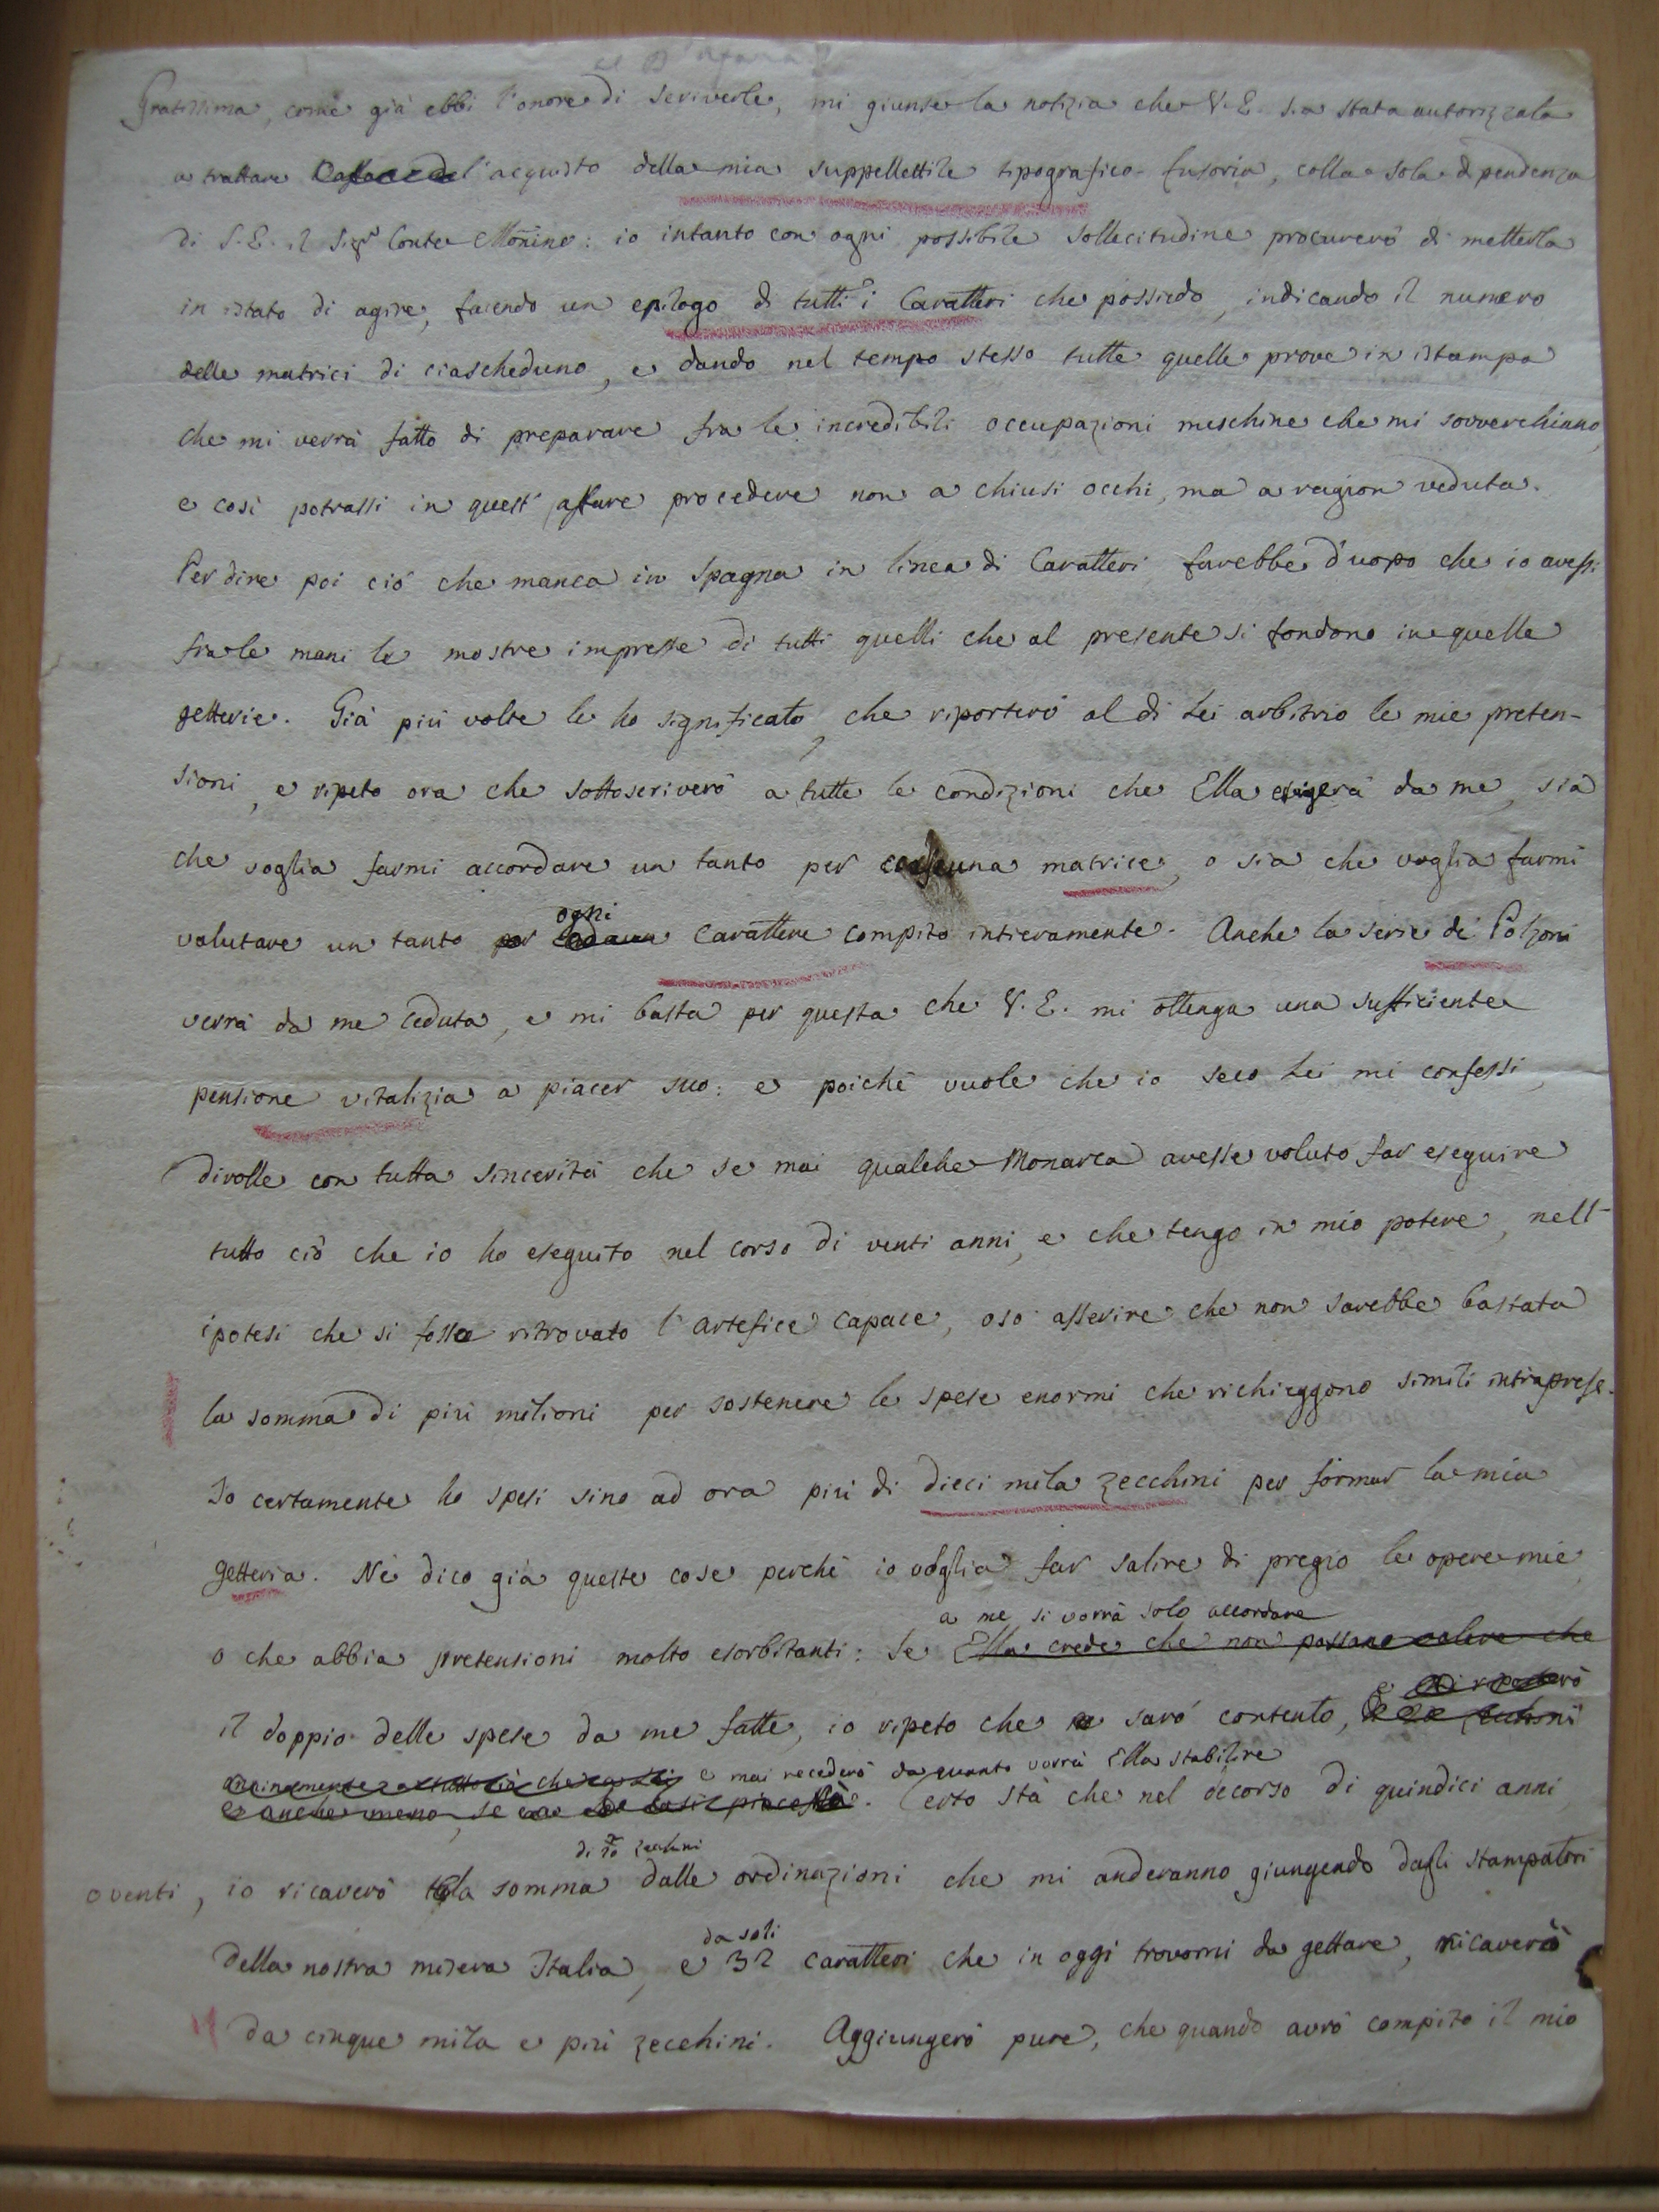 al D'Azara
Gratissima, come già ebbi l'onore di scriverle, mi giunse la notizia che V. E. sia stata autorizzata
a trattare dell'acquisto della mia suppellettile tipografico-fusoria, colla sola dipendenza
di S. E. il Sigr Conte Monino: io intanto con ogni possibile sollecitudine procurerò di metterla
in istato di agire, facendo un epilogo di tutti i Caratteri che possiedo, indicando il numero
delle matrici di ciascheduno, e dando nel tempo stesso tutte quelle prove in istampa
che mi verrà fatto di preparare fra le incredibili occupazioni meschine che mi sovverchiano,
e così potrassi in quest'affare procedere non a chiusi occhi, ma a ragion veduta.
Per dire poi ciò che manca in Spagna in linea di Caratteri farebbe d'uopo che io avessi
fra le mani le mostre impresse di tutti quelli che al presente si fondono in quelle
getterie. Già più volte le ho significato, che riporterò al di Lei arbitrio le mie preten-
sioni, e ripeto ora che sottoscriverò a tutte le condizioni che Ella esigerà da me, sia
che voglia farmi accordare un tanto per ciascuna matrice, o sia che voglia farmi
valutare un tanto per ogni Carattere compito intieramente. Anche la serie de' Polzoni
verrà da me ceduta, e mi basta per questa che V. E. mi ottenga una sufficiente
pensione vitalizia a piacer suo: e poichè vuole che io seco Lei mi confessi,
dirolle con tutta sincerità che se mai qualche Monarca avesse voluto far eseguire
tutto ciò che io ho eseguito nel corso di venti anni, e che tengo in mio potere, nell'
ipotesi che si fosse ritrovato l'artefice capace, oso asserire che non sarebbe bastata
la somma di più milioni per sostenere le spese enormi che richieggono simili intraprese.
Io certamente ho spesi sino ad ora più di dieci mila zecchini per formar la mia
getteria. Nè dico già queste cose perchè io voglia far salire di pregio le opere mie,
a me si vorrà solo accordare
o che abbia pretensioni molto esorbitanti: Se Ella crede che non possano valere che
e
il doppio delle spese da me fatte, io ripeto che sarò contento,
e mai recederò da quanto vorrà Ella stabilire
e anche meno, se così piacesse. Certo stà che nel decorso di quindici anni
di zecchini
o venti, io ricaverò tal somma dalle ordinazioni che mi anderanno giungendo dagli stampatori
da soli
della nostra misera Italia, e 32 caratteri che in oggi trovomi da gettare, ricaverò
da cinque mila e più zecchini. Aggiungerò pure, che quando avrò compito il mio